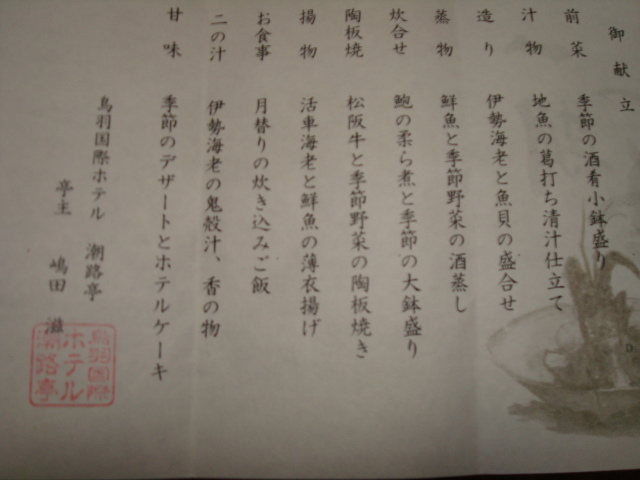 御献立
前菜 季節の酒肴小鉢盛り
汁物 地魚の葛打ち清汁仕立て
造り 伊勢海老と魚貝の盛合せ
蒸物 鮮魚と季節野菜の酒蒸し
炊合せ 鮑の柔ら煮と季節の大鉢盛り
陶板焼 松阪牛と季節野菜の陶板焼き
揚物 活車海老と鮮魚の薄衣揚げ
お食事 月替りの炊き込みご飯
二の汁 伊勢海老の鬼殻汁、香の物
甘味 季節のデザートとホテルケーキ
鳥羽国際ホテル 潮路亭
亭主 嶋田 滋
鳥羽国際
ホテル
潮路亭